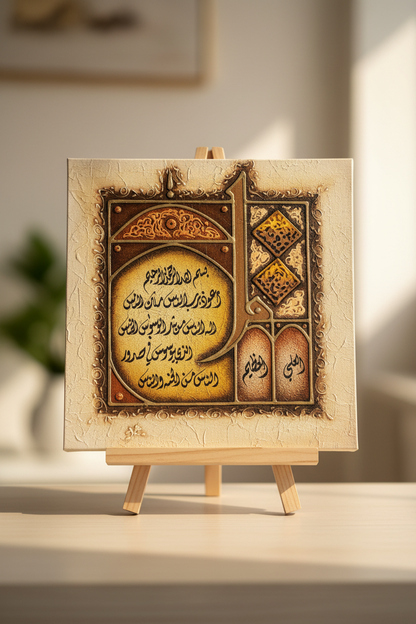 بسم الله الرحمن الرحيم
اعوذ برب الناس ملك الناس
اله الناس من شر الوسواس الخناس
الذي يوسوس في صدور
الناس من الجنه والناس
العلي
العظيم